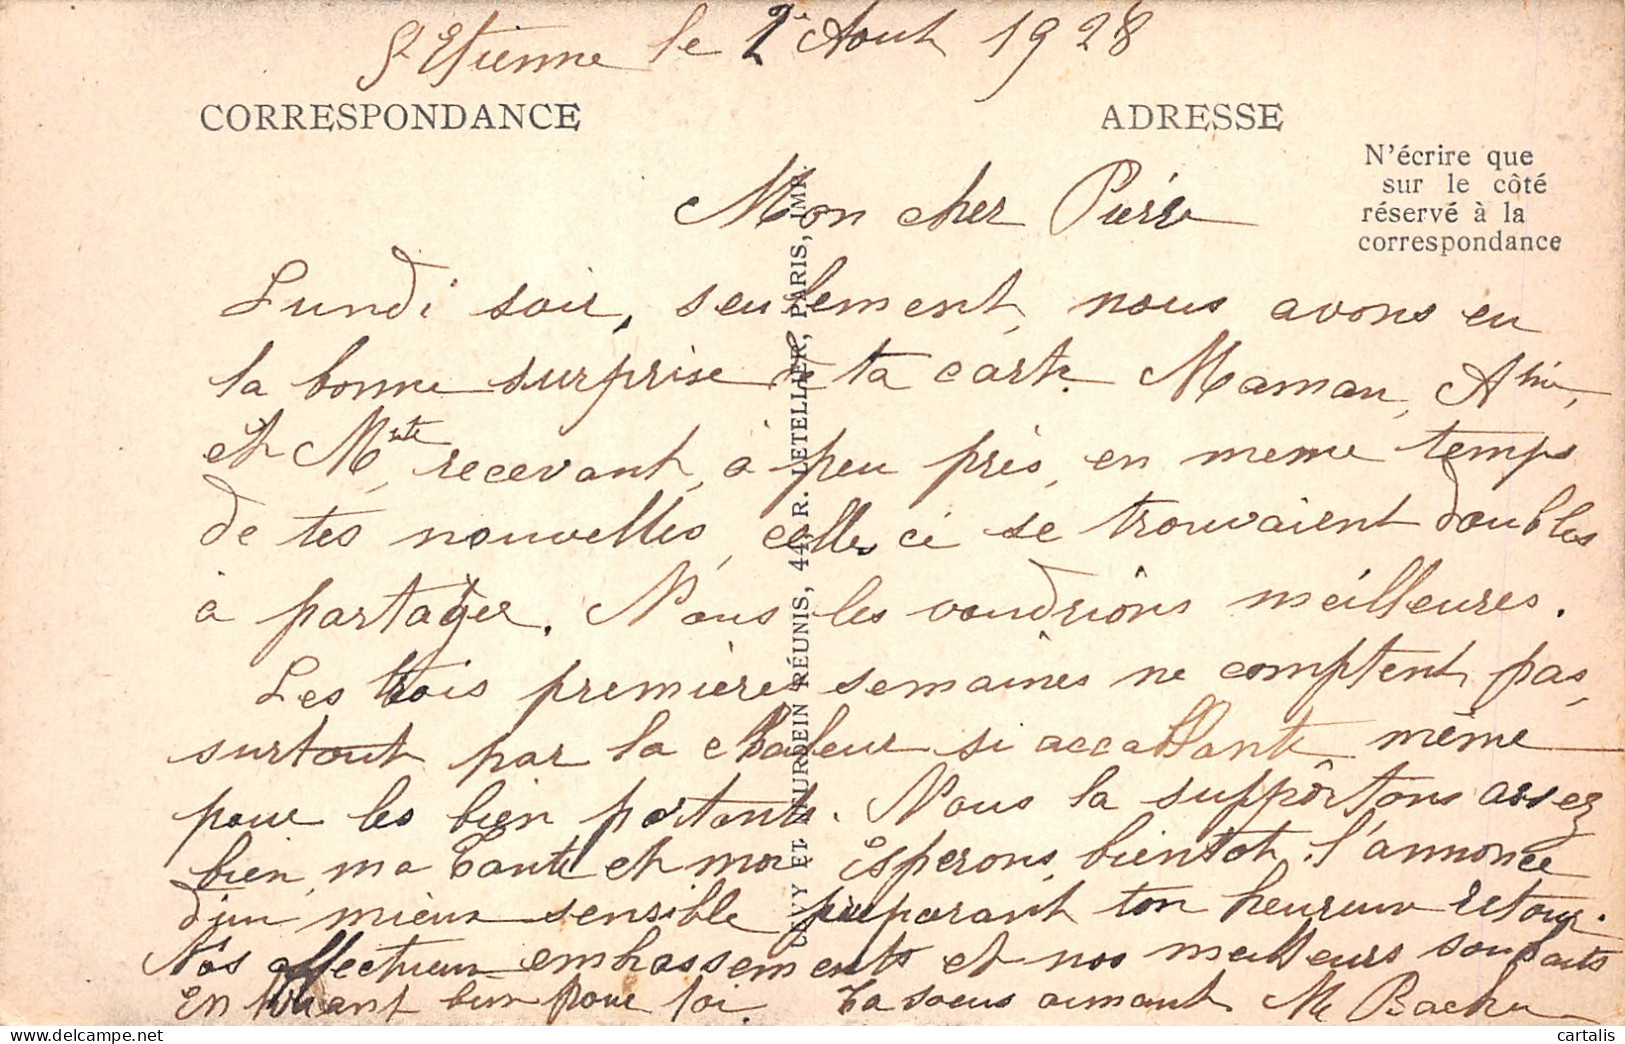 St Etienne le 2 Aout 1928
CORRESPONDANCE
ADRESSE
N'écrire que
sur le côté
réservé à la
correspondance
Mon cher Pierre
Lundi soir, seulement, nous avons eu
la bonne surprise de ta carte. Maman,
et Mite, recevant, à peu près, en meme temps
de tes nouvelles, celles ci se trouvaient doubles
à partager. Nous les voudrions meilleures.
Les trois premières semaines ne comptent pas,
surtout par la chaleur si accablante, même
pour les bien portants. Nous la supportons assez
bien, ma Tante et moi. Esperons, bientot, l'annonce
d'un mieux sensible préparant ton heureux retour.
Nos affectueux embrassements et nos meilleurs souhaits
En priant bien pour toi. Ta soeur aimante M
LEVY ET NEURDEIN RÉUNIS, 44, R. LETELLIER, PARIS, IMP.
cartalis